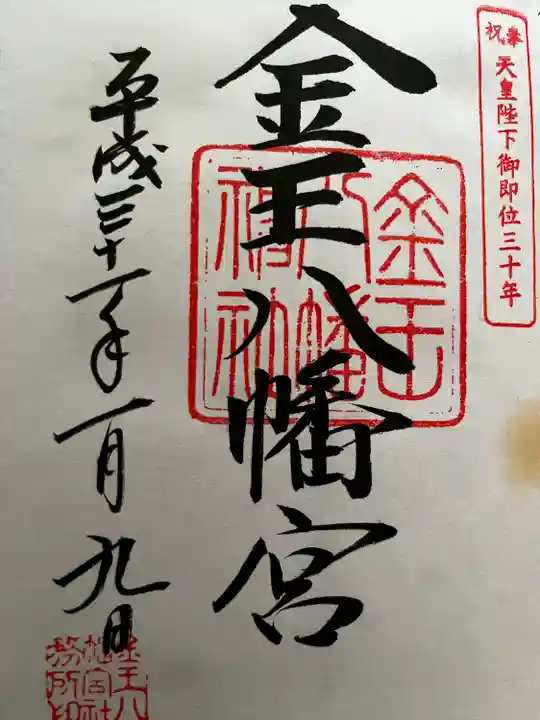 奉祝 天皇陛下御即位三十年
金王八幡宮
平成三十一年一月九日
金王八幡宮社務所印